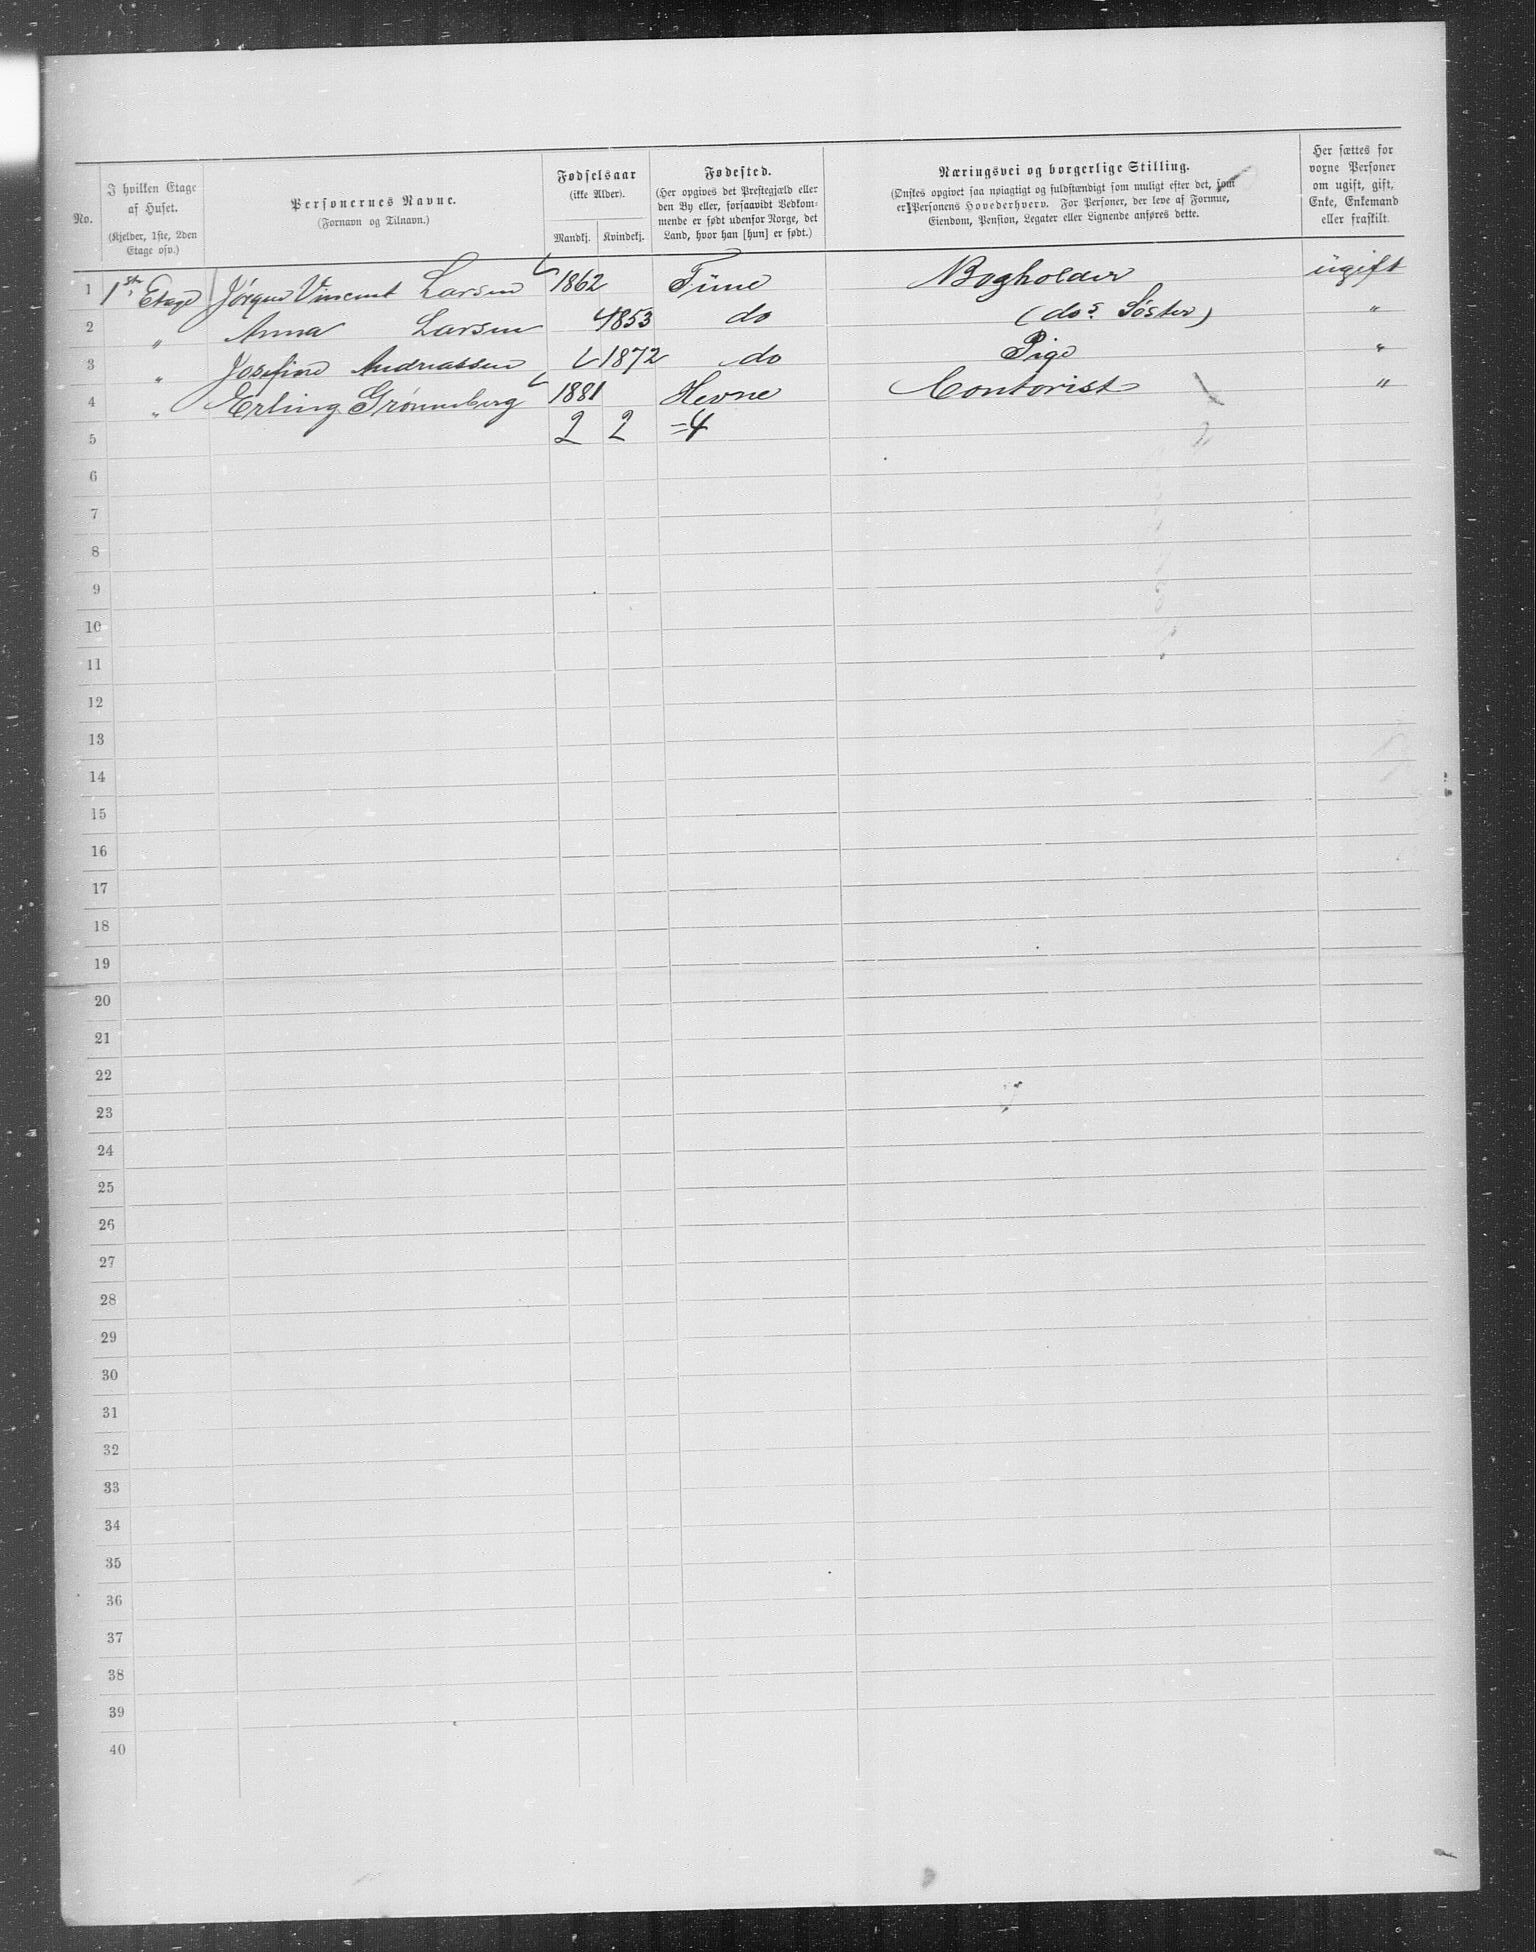 No.
I hvilken Etage af Huset.
(Kjelder, 1ste, 2den Etage osv.)
Personernes Navne.
(Fornavn og Tilnavn.)
Fødselsaar
(ikke Alder).
Mandkj. Kvindekj.
Fødested.
(Her opgives det Prestegjæld eller
den By eller, forsaavidt Vedkom-
mende er født udenfor Norge, det
Land, hvor han [hun] er født.)
Næringsvei og borgerlige Stilling.
(Ønskes opgivet saa nøiagtigt og fuldstændigt som muligt efter det, som
er Personens Hovederhverv. For Personer, der leve af Formue,
Eiendom, Pension, Legater eller Lignende anføres dette.
Her sættes for
voxne Personer
om ugift, gift,
Enke, Enkemand
eller fraskilt.
1 1ste Etage Jörgen Vincent Larsen 1862 Time Bogholder ugift
2 " Anna Larsen 1853 do (dos Söster) "
3 " Josefine Andreassen 1872 do Pige "
4 " Erling Grönneberg 1881 Hevne Contorist "
5 2 2 =4
6
7
8
9
10
11
12
13
14
15
16
17
18
19
20
21
22
23
24
25
26
27
28
29
30
31
32
33
34
35
36
37
38
39
40